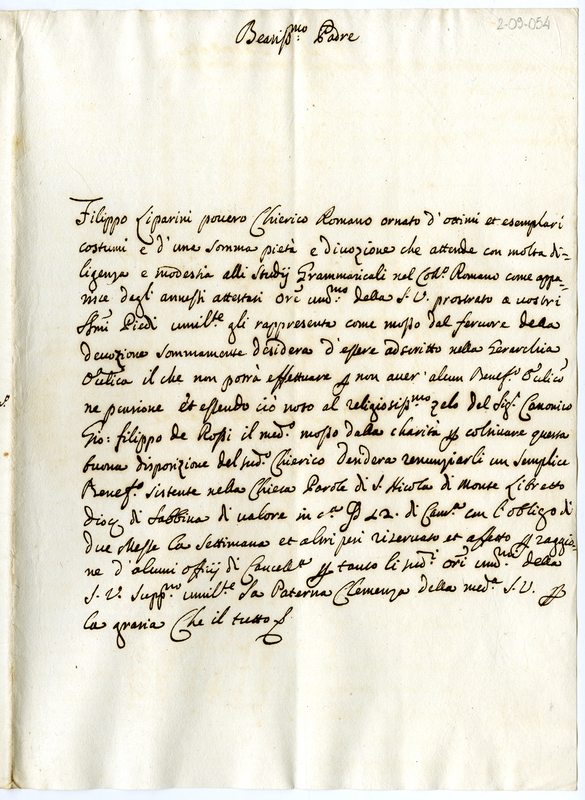 2-09-054
Beatiss.mo Padre
Filippo Liparini povero Chierico Romano ornato d'ottimi et esemplari
costumi e d'una somma pietà e divozione che attende con molta di=
ligenza e modestia alli Studij Grammaticali nel Coll.o Romano come appa=
risce dagli annessi attestati Ore um.mo della S.V. prostrato a vostri
SSmi Piedi umil.te gli rappresenta come mosso dal fervore della
devozione sommamente desidera d'essere adscritto nella Gerarchia
Eccl.ica il che non potrà effettuare p non aver' alcun Benef.o Eccl.ico
ne pensione et essendo ciò noto al religiosiss.mo zelo del Sig.r Canonico
Gio: filippo de Rossi il med.o mosso dalla charità p coltivare questa
buona disposizione del sud.o Chierico desidera renunziarli un semplice
Benef.o sistente nella Chiesa Parole di S. Nicola di Monte Libretto
dioc di Sabbina di valore in c.a 42. di Cam.a con l'obligo di
due Messe la Settimana et altri pesi riservato et affetto p raggio=
ne d'alcuni offij di Cancell.a p tanto li sud.i ori um.mi della
S.V. Supp.no umil.te la Paterna Clemenza della med.a S.V. p
la grazia Che il tutto